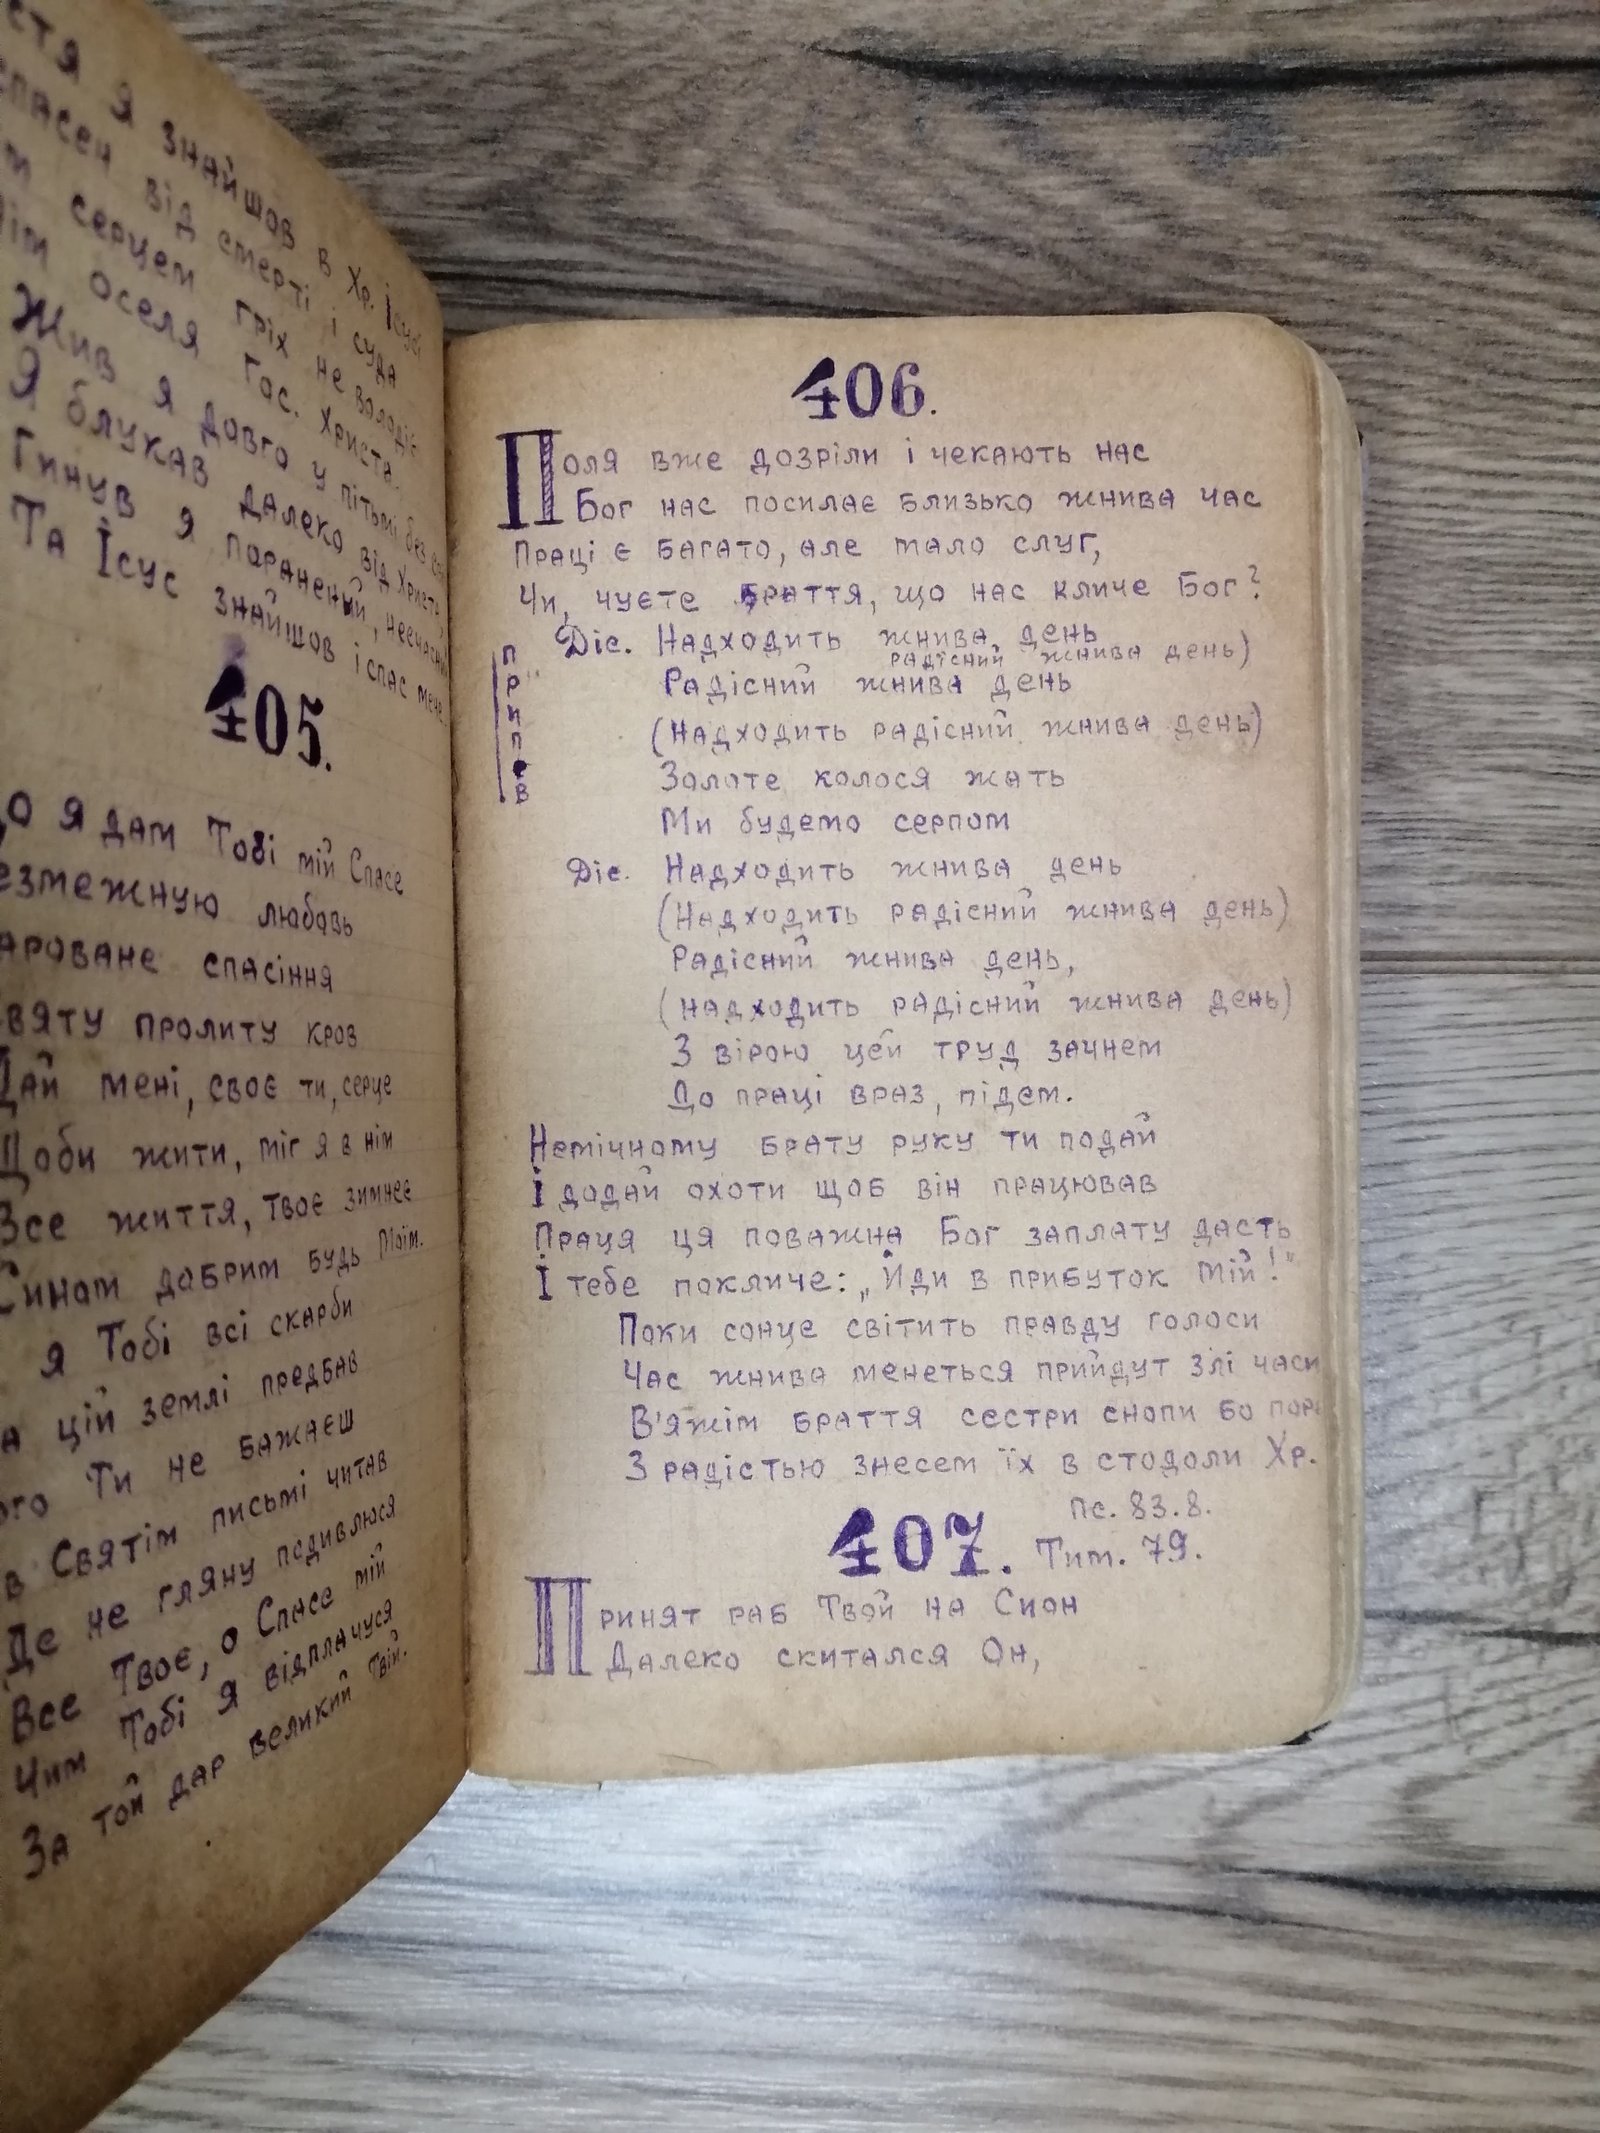 я знайшов в Хр. Ісусі
від смерті і суда
серцем гріх не володіє
оселя Гос. Христа.
Жив я довго у пітьмі без
Я блукав далеко від Христа,
Гинув я поранений, нещасний
Та Ісус знайшов і спас мене
405.
о я дам Тобі мій Спасе
езмежную любовь
ароване спасіння
вяту пролиту кров
Дай мені, своє ти, серце
Щоби жити, міг я в нім
Все життя, твоє зимнеє
Сином добрим будь Моїм.
я Тобі всі скарби
а цій землі предбав
ого Ти не бажаєш
в Святім письмі читав
Де не гляну подивлюся
Все твоє, о Спасе мій
Чим Тобі я відплачуся
За той дар великий твій.
406.
Поля вже дозріли і чекають нас
Бог нас посилає близько жнива час
Праці є багато, але мало слуг,
Чи, чуєте браття, що нас кличе Бог?
Припев
Діс. Надходить жнива день
радісний жнива день)
Радісний жнива день
(Надходить радісний жнива день)
Золоте колося жать
Ми будемо серпом
Діс. Надходить жнива день
(Надходить радісний жнива день)
Радісний жнива день,
(надходить радісний жнива день)
З вірою цей труд зачнем
До праці враз, підем.
Немічному брату руку ти подай
І додай охоти щоб він працював
Праця ця поважна Бог заплату дасть
І тебе покличе: „Йди в прибуток мій!"
Поки сонце світить правду голоси
Час жнива менеться прийдут злі часи
В'яжім браття сестри снопи бо пора
З радістью знесем їх в стодоли Хр.
пс. 83.8.
407. Тим. 79.
Принят раб Твой на Сион
Далеко скитался Он,